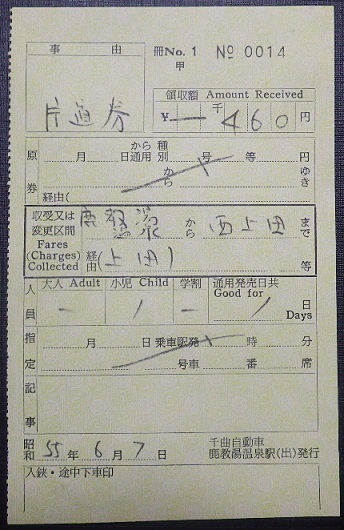 事由
冊No. 1 № 0014
甲
片道券
領収額 Amount Received
￥ 千 460 円
原券
から 種
月 日通用 別 号 等 円
から ゆき
経由(
収受又は変更区間
Fares (Charges) Collected
鹿教湯 から 西上田 まで
経由(上田) 等
人員
大人 Adult 小児 Child 学割 通用発売日共 Good for
— 1 — 1 日 Days
指定
月 日 乗車駅発 時 分
号車 番 席
記事
昭和 55 年 6 月 7 日
千曲自動車
鹿教湯温泉駅(出)発行
入鋏・途中下車印